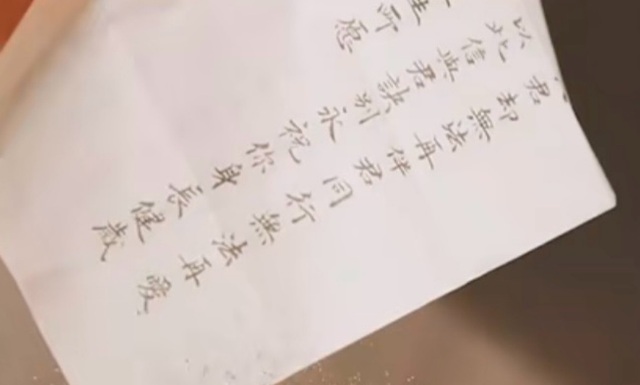 君却無法再伴君同行無法再愛
以此信與君訣別永祝你身長健歲
所愿